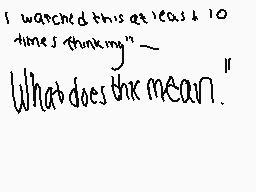 I watched this at least 10
times thinking" —
What does this mean."